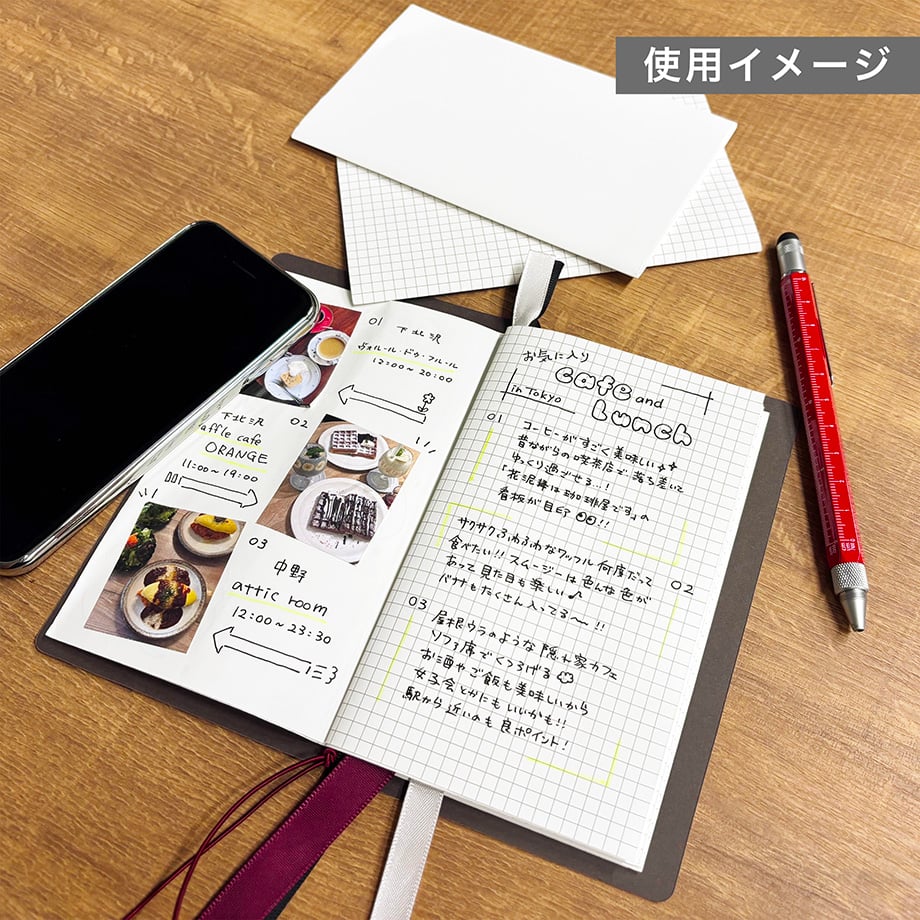 使用イメージ
01 下北沢
ヴォルール・ドゥ・フルール
12:00〜20:00
下北沢 02
affle cafe
ORANGE
11:00〜19:00
03
中野
attic room
12:00〜23:30
お気に入り
cafe and
in Tokyo
Lunch
01
コーヒーがすごく美味しい
昔ながらの喫茶店で落ち着いて
ゆっくり過ごせる..!
「花泥棒は珈琲屋です」の
看板が目印!!
サクサクふわふわなワッフル何度だって
食べたい!! スムージーは色んな色が 02
あって見た目も楽しい♪
バナナもたくさん入ってる〜!!
03
屋根ウラのような隠れ家カフェ
ソファ席でくつろげる
お酒やご飯も美味しいから
女子会とかにもいいかも!!
駅から近いのも良ポイント!